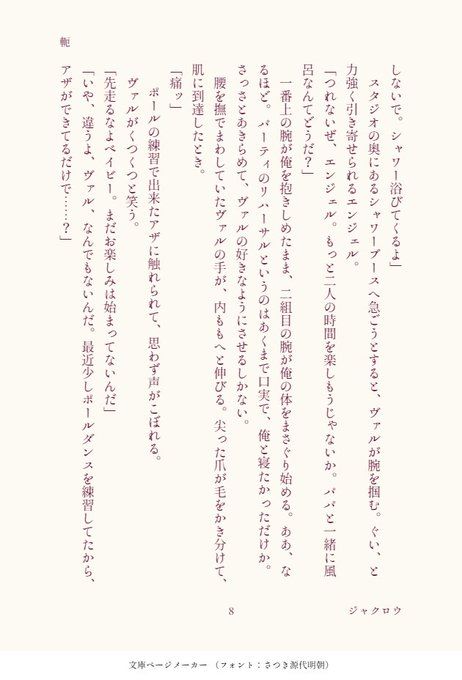 軛
しないで。シャワー浴びてくるよ」
スタジオの奥にあるシャワーブースへ急ごうとすると、ヴァルが腕を掴む。ぐい、と
力強く引き寄せられるエンジェル。
「つれないぜ、エンジェル。もっと二人の時間を楽しもうじゃないか。パパと一緒に風
呂なんてどうだ?」
一番上の腕が俺を抱きしめたまま、二組目の腕が俺の体をまさぐり始める。ああ、な
るほど。パーティのリハーサルというのはあくまで口実で、俺と寝たかっただけか。
さっさとあきらめて、ヴァルの好きなようにさせるしかない。
腰を撫でまわしていたヴァルの手が、内ももへと伸びる。尖った爪が毛をかき分けて、
肌に到達したとき。
「痛ッ」
ポールの練習で出来たアザに触れられて、思わず声がこぼれる。
ヴァルがくつくつと笑う。
「先走るなよベイビー。まだお楽しみは始まってないんだ」
「いや、違うよ、ヴァル、なんでもないんだ。最近少しポールダンスを練習してたから、
アザができてるだけで……?」
8
ジャクロウ
文庫ページメーカー (フォント:さつき源代明朝)